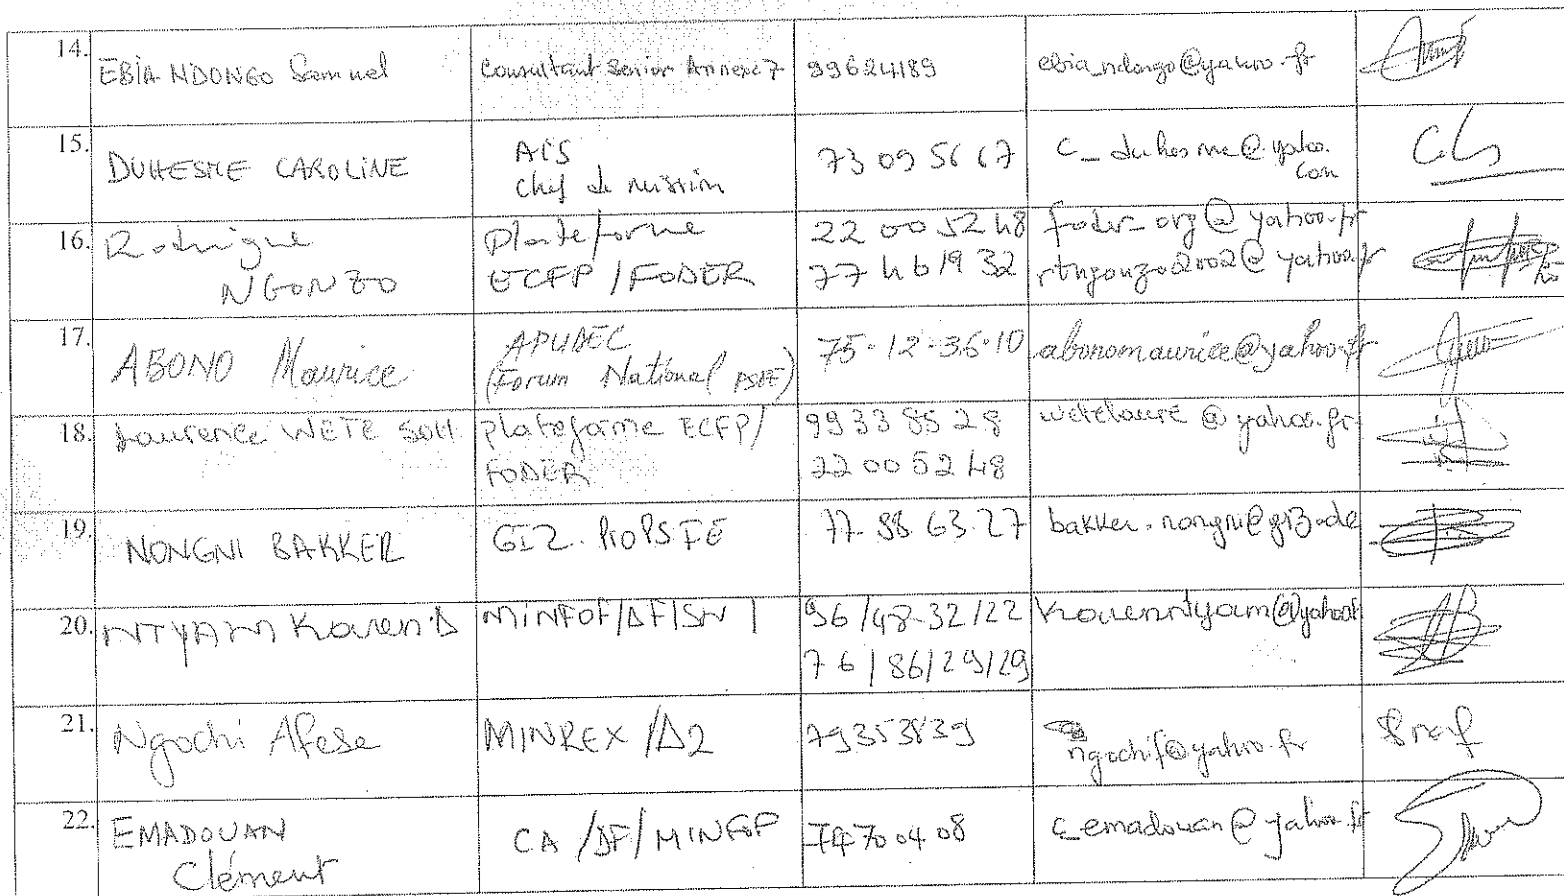 14.
EBIA NDONGO Samuel
Consultant Senior Annexe 7
99624189
ebia_ndongo@yahoo.fr
15.
DUHESME CAROLINE
AIS
Chef de mission
73 09 56 67
c_duhesme@yahoo.
com
16.
Rodrigue
NGONZO
Plateforme
ECFP / FODER
22 00 52 48
77 46 19 32
foder_org@yahoo.fr
rtngonzo2002@yahoo.fr
17.
ABONO Maurice
APUDEC
(Forum National PSFE)
75-12-36-10
abonomaurice@yahoo.fr
18.
Laurence WETE SOH
plateforme ECFP/
FODER
99 33 85 28
22 00 52 48
wetelaure@yahoo.fr
19.
NONGNI BAKKER
GIZ. ProPSFE
77.88.63.27
bakker.nongni@giz.de
20.
NTYAM Karen D
MINFOF/DF/SN 1
96/48-32/22
76/86/29/29
karenntyam@yahoo.fr
21.
Ngochi Afese
MINREX /D2
79353839
ngochif@yahoo.fr
22.
EMADOUAN
Clément
CA /DF/ MINFOF
70 04 08
c_emadouan@yahoo.fr